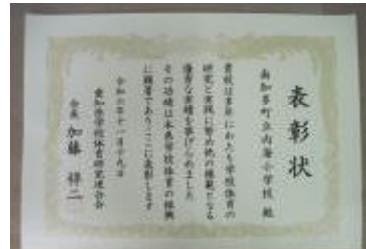 表彰状
南知多町立内海小学校 殿
貴校は多年にわたり学校体育の
研究と実践に努め他の模範となる
優秀な実績を挙げられました
その功績は本県学校体育の振興
に顕著であり、ここに表彰します
令和六年十一月十九日
愛知県学校体育研究連合会
会長 加藤